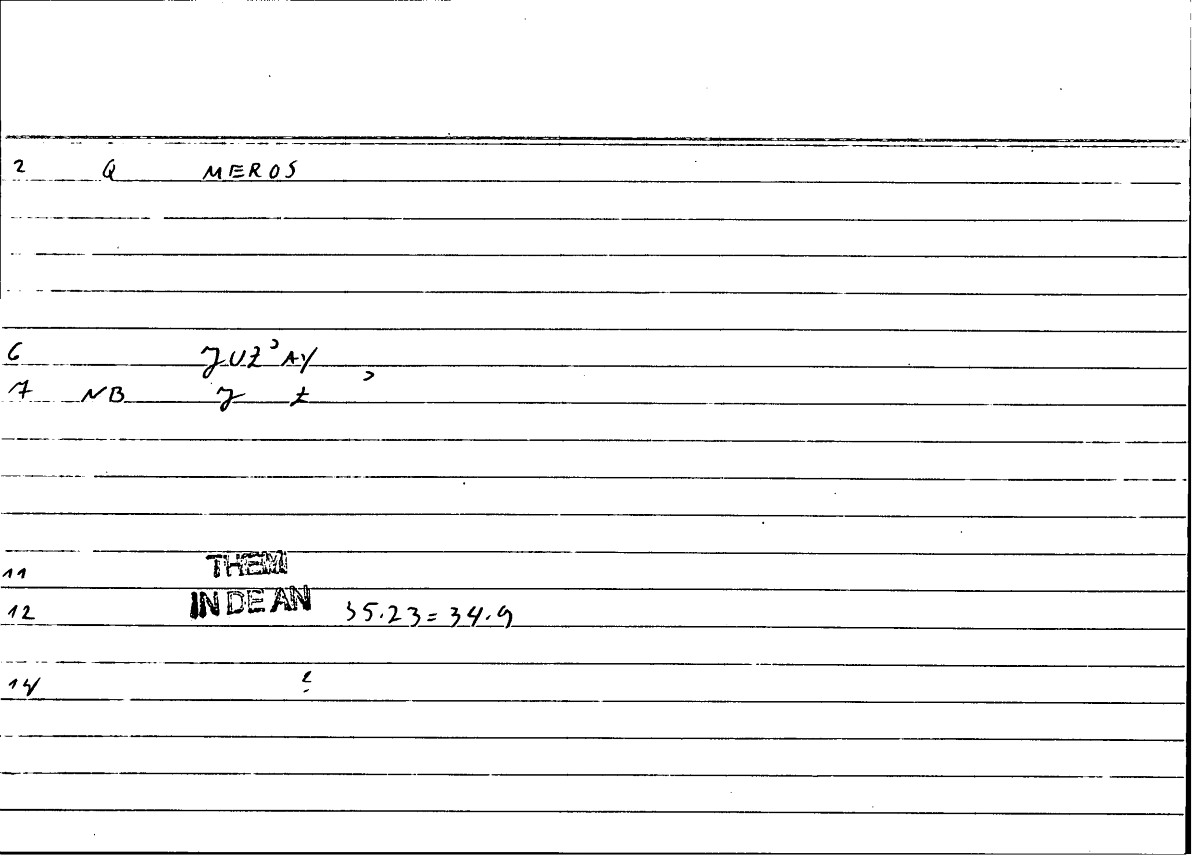 2 Q MEROS
6
7 NB
11 THEM
12 IN DE AN 35.23 = 34.9
14 ?